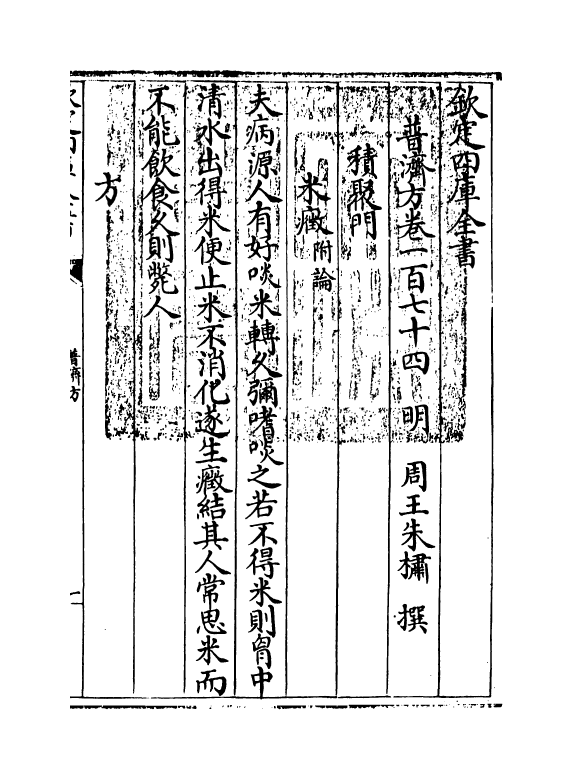 欽定四庫全書
普濟方卷一百七十四 明 周王朱橚 撰
積聚門
米癥附論
夫病源人有好啖米轉久彌嗜啖之若不得米則胷中
清水出得米便止米不消化遂生癥結其人常思米而
不能飲食久則斃人
方
普濟方